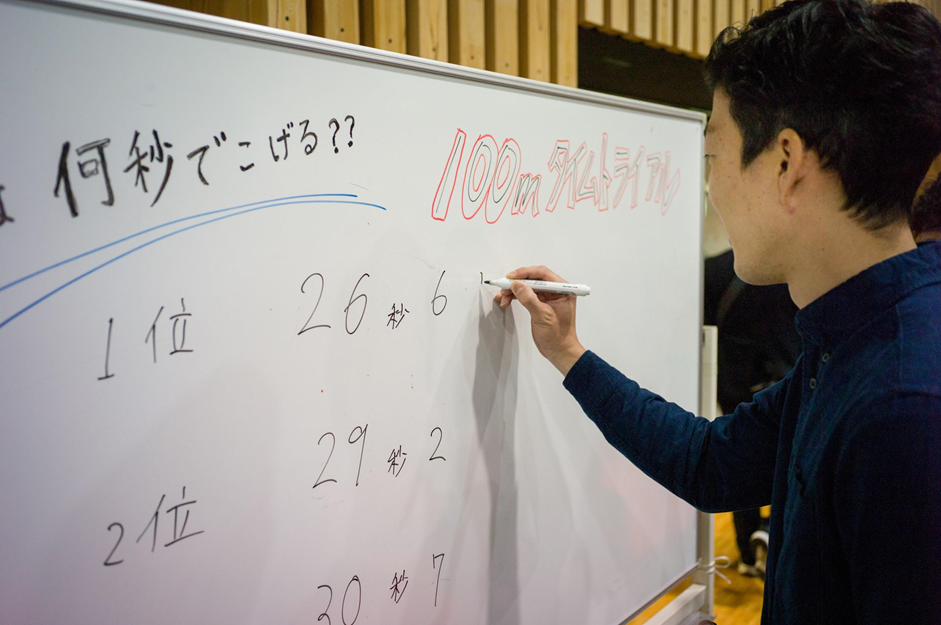 何秒でこげる??
100mタイムトライアル
1位 26秒6
2位 29秒2
30秒7